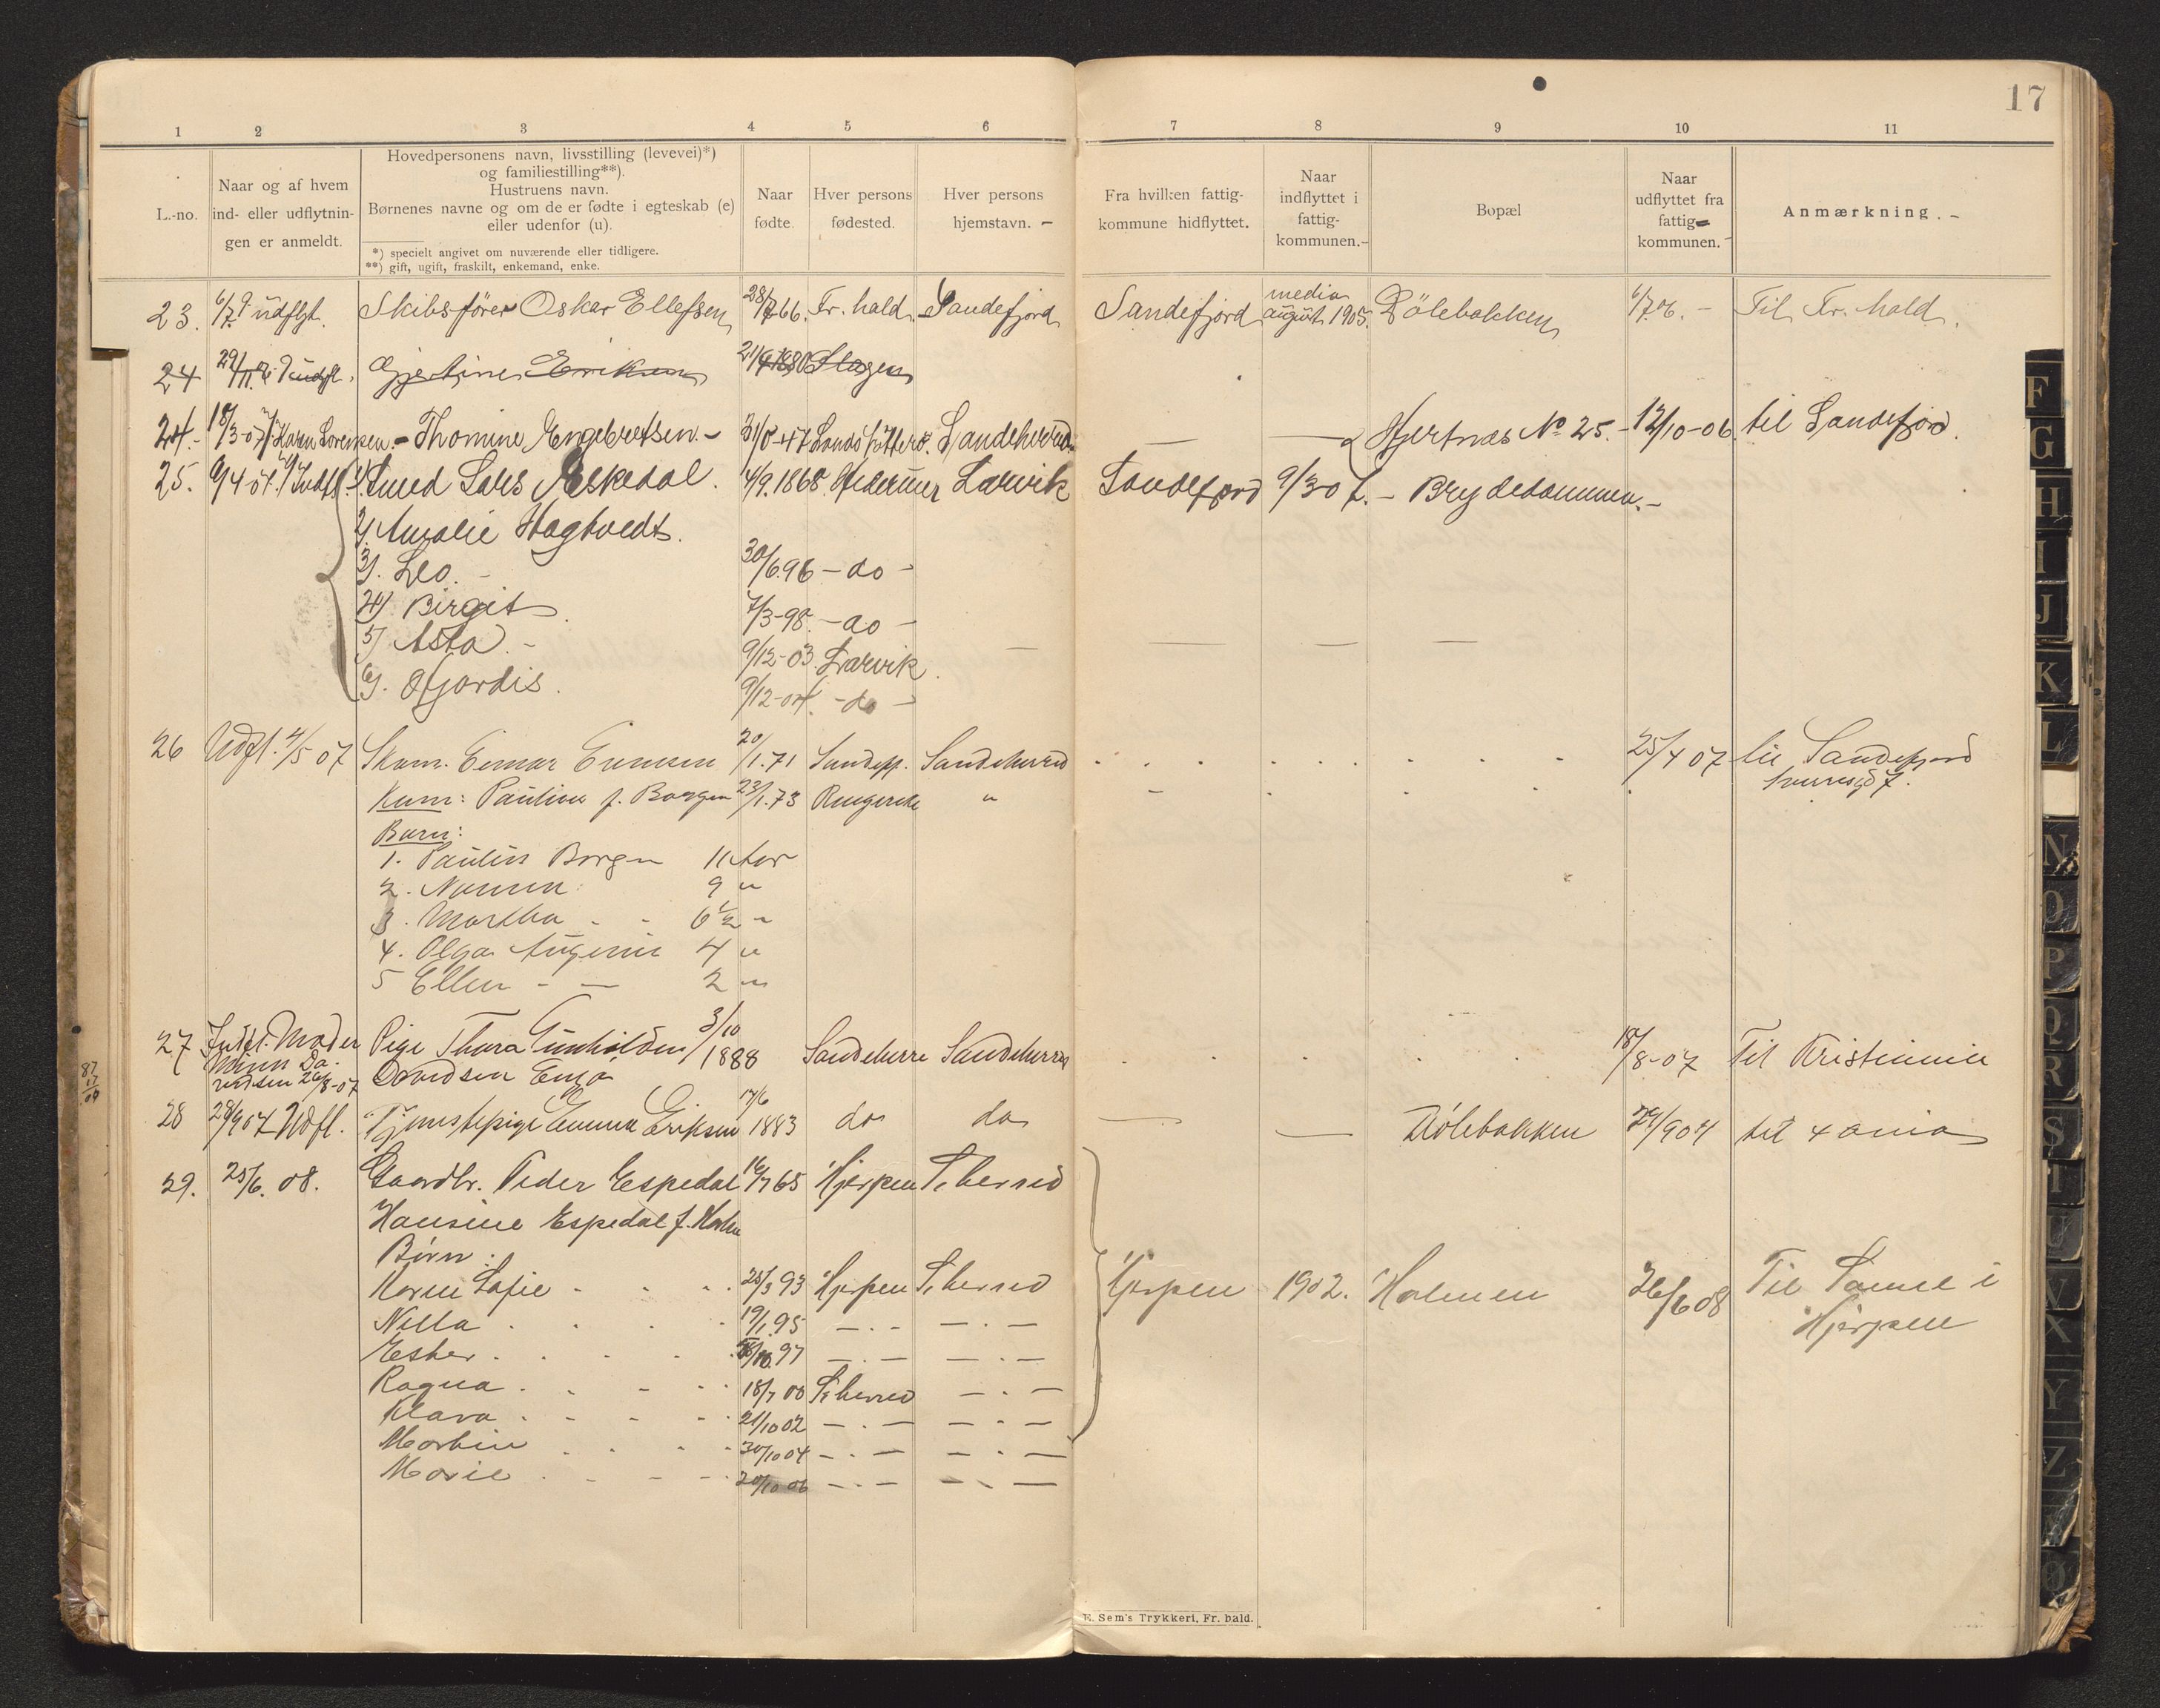 17
1 2 3 4 5 6 7 8 9 10 11
L.-no.
Naar og af hvem
ind- eller udflytnin-
gen er anmeldt.
Hovedpersonens navn, livsstilling (levevei)*)
og familiestilling**).
Hustruens navn.
Børnenes navne og om de er fødte i egteskab (e)
eller udenfor (u).
*) specielt angivet om nuværende eller tidligere.
**) gift, ugift, fraskilt, enkemand, enke.
Naar
fødte.
Hver persons
fødested.
Hver persons
hjemstavn. –
Fra hvilken fattig-
kommune hidflyttet.
Naar
indflyttet i
fattig-
kommunen.-
Bopæl
Naar
udflyttet fra
fattig-
kommunen.-
Anmærkning. –
23. 6/7 udflyt. Skibsfører Oskar Ellefsen 28/7 66. Fr. hald. Sandefjord Sandefjord media august 1905. Dölebakken 6/7.06. – Til Fr. hald.
24 Gjertine Eriksen Slagen
24.- 18/3-07 Karen Lorensen. - Thomine Engebretsen. - 31/8-47 Sandeherred. — — Hjertnæs No 25. - 12/10-06 til Sandefjord.
25. 9/4 07. Indfl. 1). Lars Eskedal. 4/9.1868. Hedenum Larvik Sandefjord 9/3 07. - Brydedammen. -
2). Amalie Hagtvedt.
3). Leo. - 30/6.96 - do -
4) Birgit. 7/3-98. - do -
5) Asta. - 9/12-03. Larvik. — — — —
6). Hjördis. 9/12-04. - do -
26 Udfl. 4/5 07 Skom. Einar Evensen 20/1.71 Sandefj. Sandeherred 25/4 07 til Sandefjord
Kum: Pauline f. Borgen 23/1.73 Ringerike "
Barn:
1. Paulus Borgen 11 Aar
2. Nanna 9 "
3. Martha - - 6½ "
4. Olga Eugenie 4 "
5 Ellen - — 2 "
27 Indfl. Moder Pige Thora Gunhilda 3/10 1888 Sandeherre Sandeherred 18/8-07 Til Kristiania
Da-
vidsen 26/8-07 Davidsen Enga
87
17
09
28 28/9 07 Udfl. Tjenestepige Emma Eriksen 17/6 1883 do do — — Dölebakken 29/9 07 til Xania
29. 25/6. 08. Gaardbr. Peder Espedal 16/7 65 Hjerpen S. herred
Hansine Espedal f. Holm
Börn:
Karen Sofie - - - 25/3 93 Hjerpen S. herred Hjerpen 1902. Holmen 26/6 08 Til Tamel i
Nella . . . . 19/1.95 —.— —.— Hjerpen
Ester . . . . 97 —.— —.—
Ragna . . - . 18/7 00 S. herred —.—
Klara . - - - 21/10 02 —.— —.—
Martin . . . . 30/10 04 —.— —.—
Marie . - - - 20/10 06 —.— —.—
E. Sem's Trykkeri, Fr. hald.
F
G
H
I
J
K
L
N
O
P
Q
R
S
T
U
V
X
Y
Z
Ø